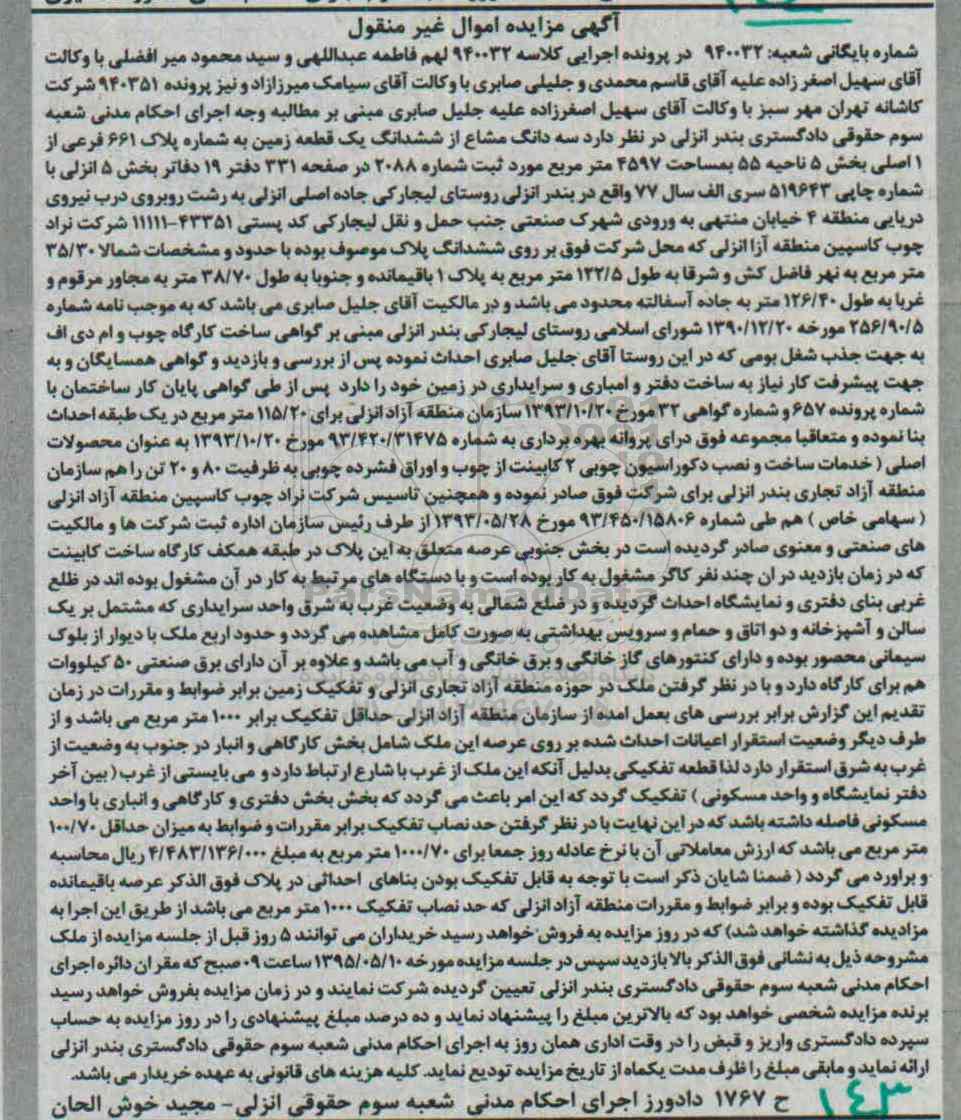 آگهی مزایده اموال غیر منقول
شماره بایگانی شعبه: ۹۴۰۰۳۲ در پرونده اجرایی کلاسه ۹۴۰۰۳۲ لهم فاطمه عبداللهی و سید محمود میر افضلی با وکالت
آقای سهیل اصغر زاده علیه آقای قاسم محمدی و جلیلی صابری با وکالت آقای سیامک میرزازاد و نیز پرونده ۹۴۰۳۵۱ شرکت
کاشانه تهران مهر سبز با وکالت آقای سهیل اصغرزاده علیه جلیل صابری مبنی بر مطالبه وجه اجرای احکام مدنی شعبه
سوم حقوقی دادگستری بندر انزلی در نظر دارد سه دانگ مشاع از ششدانگ یک قطعه زمین به شماره پلاک ۶۶۱ فرعی از
۱ اصلی بخش ۵ ناحیه ۵۵ بمساحت ۴۵۹۷ متر مربع مورد ثبت شماره ۲۰۸۸ در صفحه ۳۳۱ دفتر ۱۹ دفاتر بخش ۵ انزلی با
شماره چاپی ۵۱۹۶۴۳ سری الف سال ۷۷ واقع در بندر انزلی روستای لیجارکی جاده اصلی انزلی به رشت روبروی درب نیروی
دریایی منطقه ۴ خیابان منتهی به ورودی شهرک صنعتی جنب حمل و نقل لیجارکی کد پستی ۴۳۳۵۱-۱۱۱۱۱ شرکت نراد
چوب کاسپین منطقه آزا انزلی که محل شرکت فوق بر روی ششدانگ پلاک موصوف بوده با حدود و مشخصات شمالا ۳۵/۳۰
متر مربع به نهر فاضل کش و شرقا به طول ۱۲۲/۵ متر مربع به پلاک ۱ باقیمانده و جنوبا به طول ۳۸/۷۰ متر به مجاور مرقوم و
غربا به طول ۱۲۶/۴۰ متر به جاده آسفالته محدود می باشد و در مالکیت آقای جلیل صابری می باشد که به موجب نامه شماره
۲۵۶/۹۰/۵ مورخه ۱۳۹۰/۱۲/۲۰ شورای اسلامی روستای لیجارکی بندر انزلی مبنی بر گواهی ساخت کارگاه چوب و ام دی اف
به جهت جذب شغل بومی که در این روستا آقای جلیل صابری احداث نموده پس از بررسی و بازدید و گواهی همسایگان و به
جهت پیشرفت کار نیاز به ساخت دفتر و امباری و سرایداری در زمین خود را دارد پس از طی گواهی پایان کار ساختمان با
شماره پرونده ۶۵۷ و شماره گواهی ۳۲ مورخ ۱۳۹۳/۱۰/۲۰ سازمان منطقه آزاد انزلی برای ۱۱۵/۲۰ متر مربع در یک طبقه احداث
بنا نموده و متعاقبا مجموعه فوق درای پروانه بهره برداری به شماره ۹۳/۴۲۰/۳۱۴۷۵ مورخ ۱۳۹۳/۱۰/۲۰ به عنوان محصولات
اصلی ( خدمات ساخت و نصب دکوراسیون چوبی ۲ کابینت از چوب و اوراق فشرده چوبی به ظرفیت ۸۰ و ۲۰ تن را هم سازمان
منطقه آزاد تجاری بندر انزلی برای شرکت فوق صادر نموده و همچنین تاسیس شرکت نراد چوب کاسپین منطقه آزاد انزلی
( سهامی خاص ) هم طی شماره ۹۳/۴۵۰/۱۵۸۰۶ مورخ ۱۳۹۳/۰۵/۲۸ از طرف رئیس سازمان اداره ثبت شرکت ها و مالکیت
های صنعتی و معنوی صادر گردیده است در بخش جنوبی عرصه متعلق به این پلاک در طبقه همکف کارگاه ساخت کابینت
که در زمان بازدید در ان چند نفر کاگر مشغول به کار بوده است و با دستگاه های مرتبط به کار در آن مشغول بوده اند در ظلع
غربی بنای دفتری و نمایشگاه احداث گردیده و در ضلع شمالی به وضعیت غرب به شرق واحد سرایداری که مشتمل بر یک
سالن و آشپزخانه و دو اتاق و حمام و سرویس بهداشتی به صورت کامل مشاهده می گردد و حدود اربع ملک با دیوار از بلوک
سیمانی محصور بوده و دارای کنتورهای گاز خانگی و برق خانگی و آب می باشد و علاوه بر آن دارای برق صنعتی ۵۰ کیلووات
هم برای کارگاه دارد و با در نظر گرفتن ملک در حوزه منطقه آزاد تجاری انزلی و تفکیک زمین برابر ضوابط و مقررات در زمان
تقدیم این گزارش برابر بررسی های بعمل امده از سازمان منطقه آزاد انزلی حداقل تفکیک برابر ۱۰۰۰ متر مربع می باشد و از
طرف دیگر وضعیت استقرار اعیانات احداث شده بر روی عرصه این ملک شامل بخش کارگاهی و انبار در جنوب به وضعیت از
غرب به شرق استقرار دارد لذا قطعه تفکیکی بدلیل آنکه این ملک از غرب با شارع ارتباط دارد و می بایستی از غرب ( بین آخر
دفتر نمایشگاه و واحد مسکونی ) تفکیک گردد که این امر باعث می گردد که بخش بخش دفتری و کارگاهی و انباری با واحد
مسکونی فاصله داشته باشد که در این نهایت با در نظر گرفتن حد نصاب تفکیک برابر مقررات و ضوابط به میزان حداقل ۱۰۰/۷۰
متر مربع می باشد که ارزش معاملاتی آن با نرخ عادله روز جمعا برای ۱۰۰۰/۷۰ متر مربع به مبلغ ۴/۴۸۳/۱۳۶/۰۰۰ ریال محاسبه
و براورد می گردد ( ضمنا شایان ذکر است با توجه به قابل تفکیک بودن بناهای احداثی در پلاک فوق الذکر عرصه باقیمانده
قابل تفکیک بوده و برابر ضوابط و مقررات منطقه آزاد انزلی که حد نصاب تفکیک ۱۰۰۰ متر مربع می باشد از طریق این اجرا به
مزادیده گذاشته خواهد شد) که در روز مزایده به فروش خواهد رسید خریداران می توانند ۵ روز قبل از جلسه مزایده از ملک
مشروحه ذیل به نشانی فوق الذکر بالا بازدید سپس در جلسه مزایده مورخه ۱۳۹۵/۰۵/۱۰ ساعت ۰۹ صبح که مقر ان دائره اجرای
احکام مدنی شعبه سوم حقوقی دادگستری بندر انزلی تعیین گردیده شرکت نمایند و در زمان مزایده بفروش خواهد رسید
برنده مزایده شخصی خواهد بود که بالاترین مبلغ را پیشنهاد نماید و ده درصد مبلغ پیشنهادی را در روز مزایده به حساب
سپرده دادگستری واریز و قبض را در وقت اداری همان روز به اجرای احکام مدنی شعبه سوم حقوقی دادگستری بندر انزلی
ارائه نماید و مابقی مبلغ را ظرف مدت یکماه از تاریخ مزایده تودیع نماید. کلیه هزینه های قانونی به عهده خریدار می باشد.
ح ۱۷۶۷ دادورز اجرای احکام مدنی شعبه سوم حقوقی انزلی- مجید خوش الحان
۱۴۳